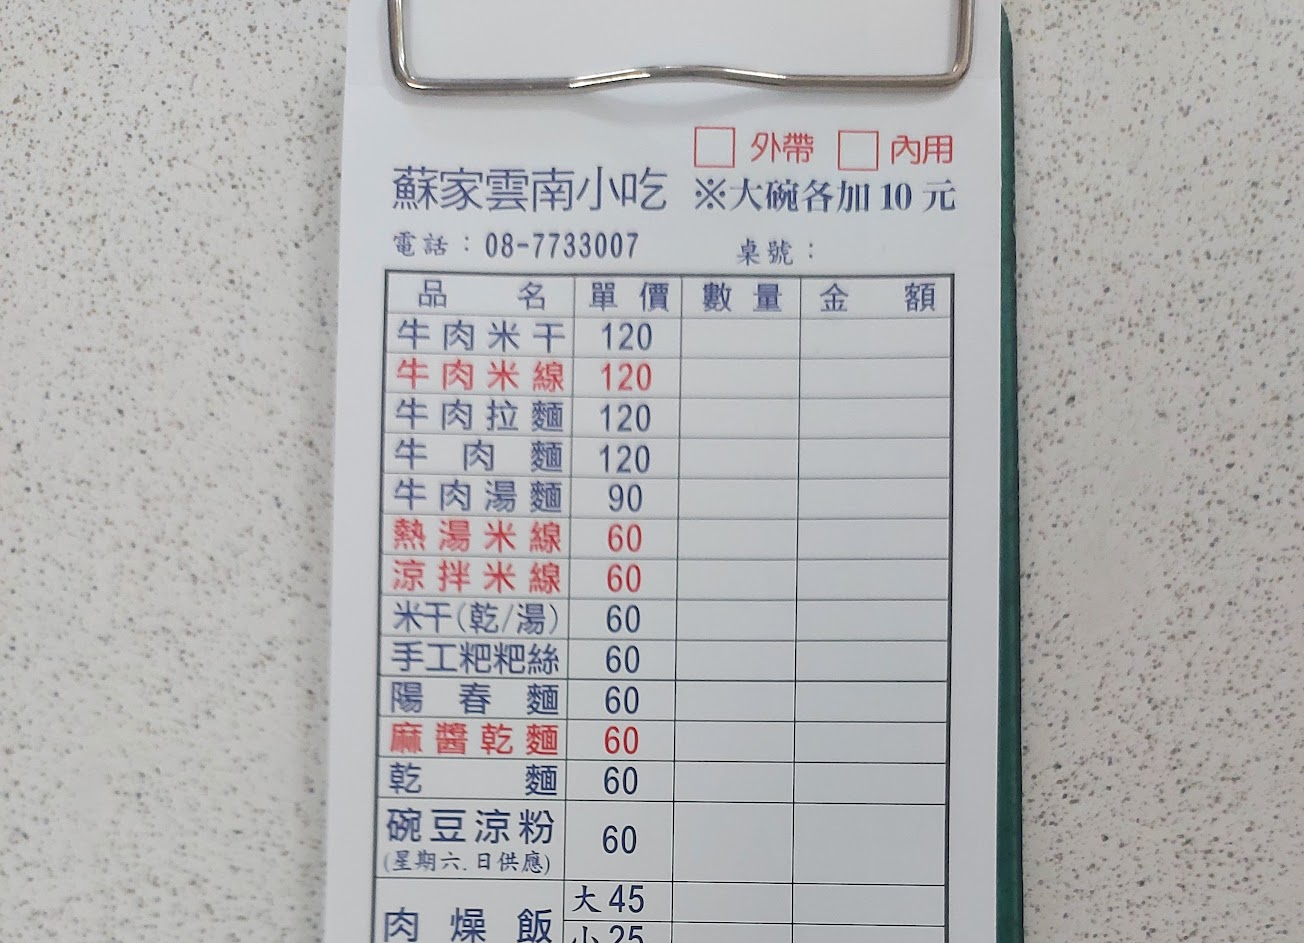 □ 外帶 □ 內用
蘇家雲南小吃 ※大碗各加 10 元
電話：08-7733007 桌號：
品名 單價 數量 金額
牛肉米干 120
牛肉米線 120
牛肉拉麵 120
牛肉麵 120
牛肉湯麵 90
熱湯米線 60
涼拌米線 60
米干(乾/湯) 60
手工粑粑絲 60
陽春麵 60
麻醬乾麵 60
乾麵 60
碗豆涼粉 60
(星期六.日供應)
肉燥飯 大 45
小 25